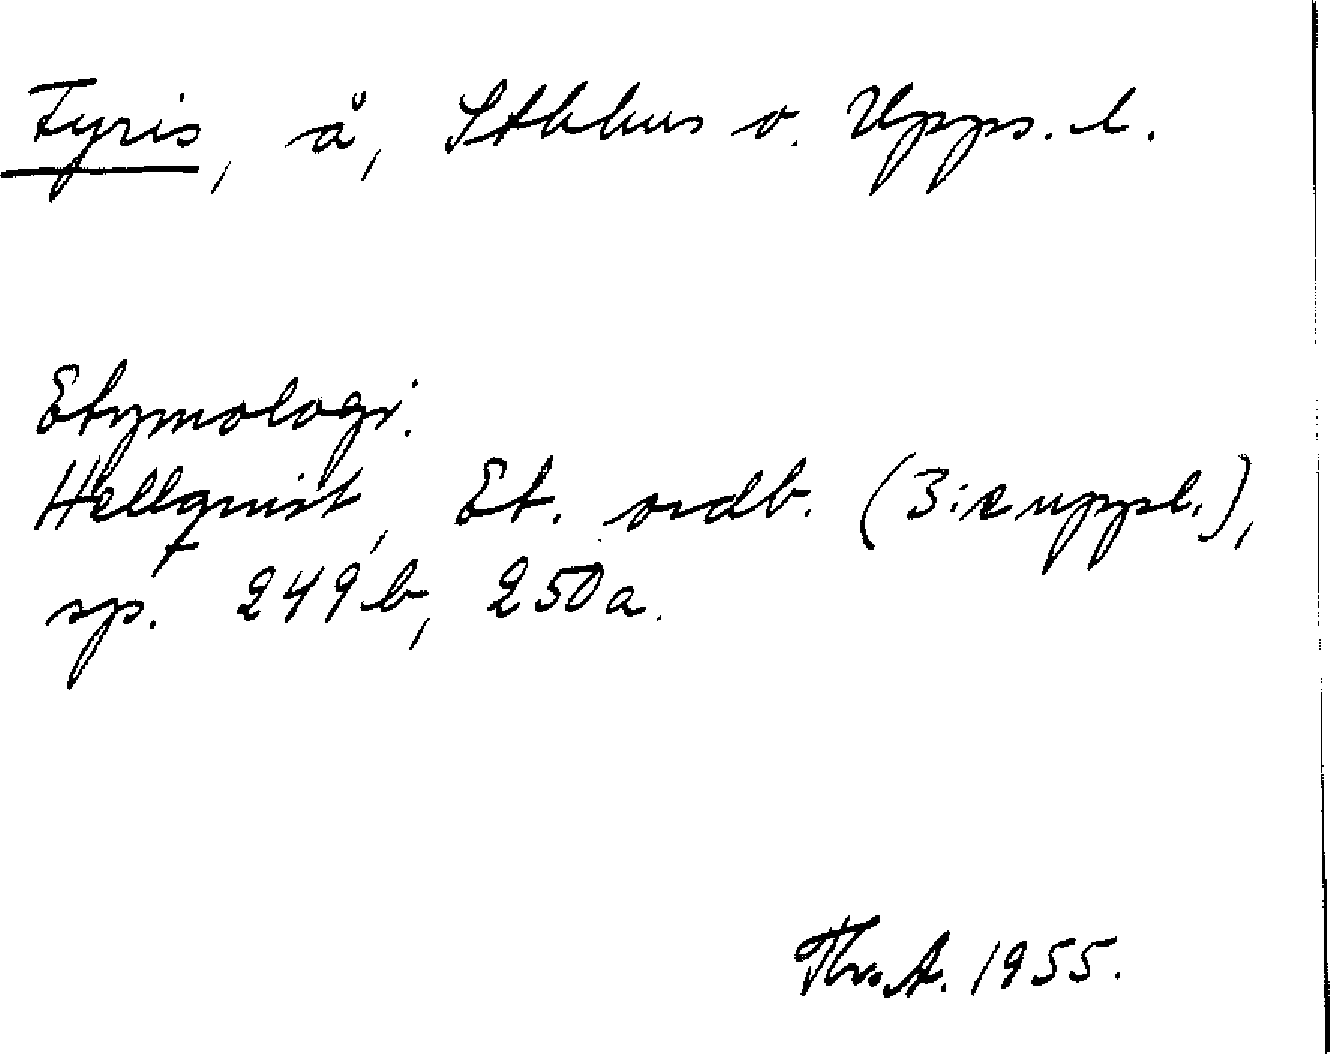 Fyris, å, Sthlms o. Upps. l.
Etymologi.
Hellquist, Et. ordb. (3:e uppl.),
sp. 249b, 250a.
Thv. A. 1955.